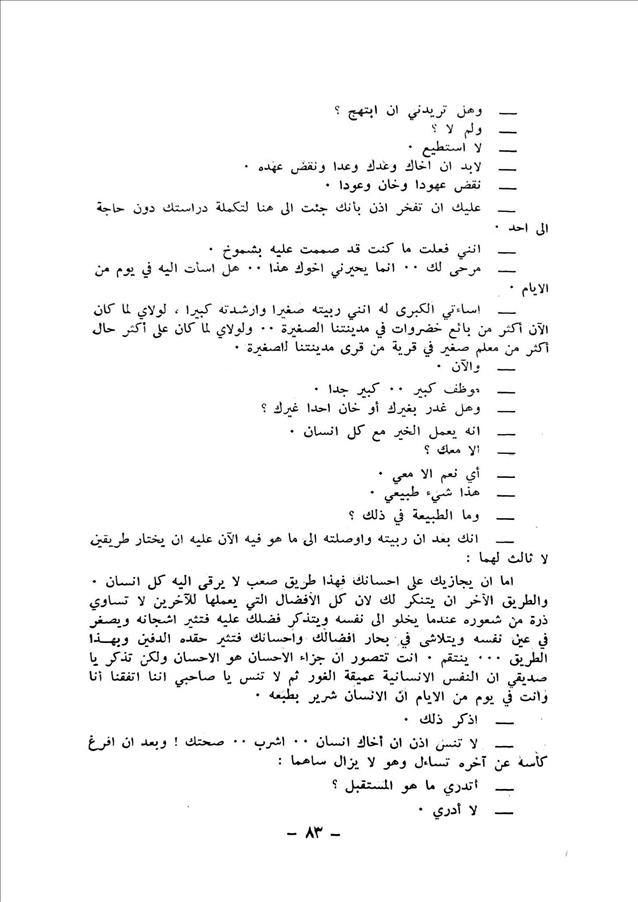 — وهل تريدني ان ابتهج ؟
— ولم لا ؟
— لا استطيع .
— لابد ان أخاك وعدك وعدا ونقض عهده .
— نقض عهودا وخان وعودا .
— عليك ان تفخر اذن بأنك جئت الى هنا لتكملة دراستك دون حاجة
الى احد .
— انني فعلت ما كنت قد صممت عليه بشموخ .
— مرحى لك .. انما يحيرني اخوك هذا .. هل اسأت اليه في يوم من
الايام .
— اساءتي الكبرى له انني ربيته صغيرا وارشدته كبيرا ، لولاي لما كان
الآن أكثر من بائع خضروات في مدينتنا الصغيرة .. ولولاي لما كان على أكثر حال
أكثر من معلم صغير في قرية من قرى مدينتنا لاصغيرة .
— والآن .
— موظف كبير .. كبير جدا .
— وهل غدر بغيرك أو خان احدا غيرك ؟
— انه يعمل الخير مع كل انسان .
— الا معك ؟
— أي نعم الا معي .
— هذا شيء طبيعي .
— وما الطبيعة في ذلك ؟
— انك بعد ان ربيته واوصلته الى ما هو فيه الآن عليه ان يختار طريقين
لا ثالث لهما :
اما ان يجازيك على احسانك فهذا طريق صعب لا يرقى اليه كل انسان .
والطريق الآخر ان يتنكر لك لان كل الأفضال التي يعملها للآخرين لا تساوي
ذرة من شعوره عندما يخلو الى نفسه ويتذكر فضلك عليه فتثير اشجانه ويصغر
في عين نفسه ويتلاشى في بحار افضالك واحسانك فتثير حقده الدفين وبهــذا
الطريق ... ينتقم . انت تتصور ان جزاء الاحسان هو الاحسان ولكن تذكر يا
صديقي ان النفس الانسانية عميقة الغور ثم لا تنس يا صاحبي اننا اتفقنا أنا
وانت في يوم من الايام ان الانسان شرير بطبعه .
— اذكر ذلك .
— لا تنس اذن ان أخاك انسان .. اشرب .. صحتك ! وبعد ان افرغ
كأسه عن آخره تساءل وهو لا يزال ساهما :
— أتدري ما هو المستقبل ؟
— لا أدري .
— ٨٣ —